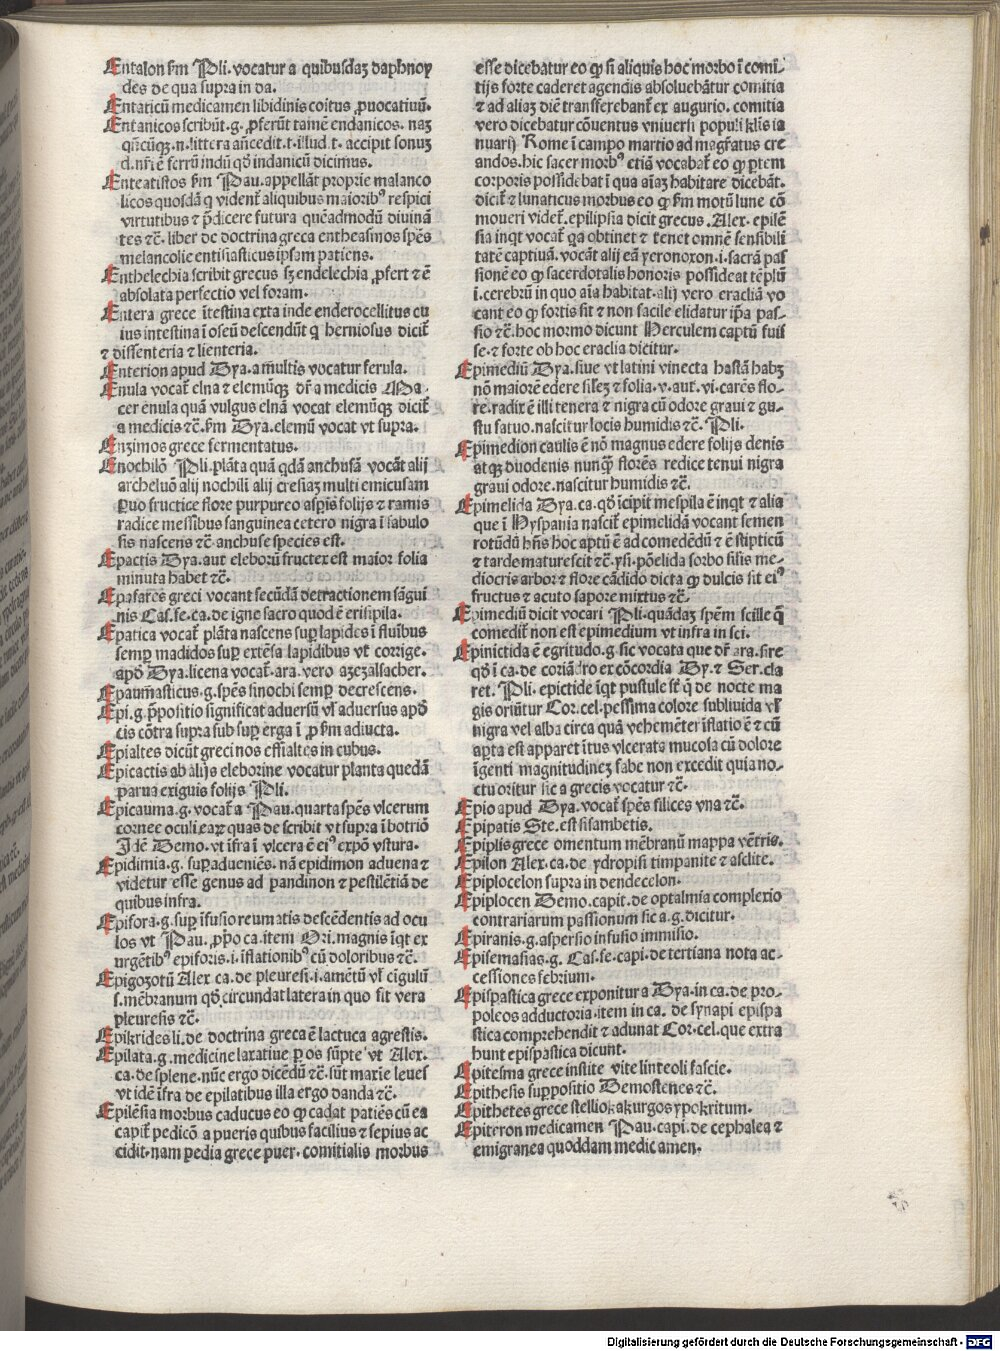 Entalon ẜm Pli. vocatur a quibusdaꝫ daphnoy
des de qua supra in da.
Entaticū medicamen libidinis coitus ꝓuocatiuū.
Entanicos scribūt.g. ꝓferūt tamē endanicos. naꝫ
qn̄cūqꝫ.n.littera an̄cedit.t.illud.t. accipit sonuꝫ
d.nr̄i ē ferrū indū qḋ indanicū dicimus.
Enteatistos ẜm Pau. appellāt proprie malanco
licos quosdā q vident᷑ aliquibus maiorib⁹ respici
virtutibus ⁊ p̄dicere futura quēadmodū diuinā
tes ⁊c̄. liber de doctrina greca entheasinos sp̄es
melancolie entisiasticus ipsam patiens.
Enthelechia scribit grecus sꝫ endelechia ꝓfert ⁊ ē
absolata perfectio vel foram.
Entera grece ītestina exta inde enderocellitus cu
ius intestina ī oseū descendūt q herniosus dicit᷑
⁊ dissenteria ⁊ lienteria.
Enterion apud Dya. a multis vocatur ferula.
Enula vocat᷑ elna ⁊ elemūqꝫ dr̄ a medicis Ma-
cer enula quā vulgus elnā vocat elemūqꝫ dicit᷑
a medicis ⁊c̄. ẜm Dya. elemū vocat vt supra.
Enzimos grece fermentatus.
Enochilō Pli. plāta quā qdā anchusā vocāt alij
archeluō alij nochili alij cresiaꝫ multi emicusam
ꝑuo fructice flore purpureo asp̄is folijs ⁊ ramis
radice messibus sanguinea cetero nigra ī sabulo
sis nascens ⁊c̄ anchuse species est.
Epactis Dya. aut eleborū fructex est maior folia
minuta habet ⁊c̄.
Epafares greci vocant secūdā detractionem sāgui
nis Cas.fe.ca.de igne sacro quod ē erisipila.
Epatica vocat᷑ plāta nascens suꝑ lapides ī fluībus
semꝑ madidos suꝑ extēsa lapidibus vt᷑ corrige.
apḋ Dya. licena vocat᷑. ara. vero azezalsacher.
Epaumasticus.g.sp̄es sinochi semꝑ decrescens.
Epi.g.p̄positio significat aduersū vl᷑ aduersus apḋ
cis cōtra supra sub suꝑ erga ī ꝓ ẜm adiucta.
Epialtes dicūt greci nos effialtes in cubus.
Epicactis ab alijs eleborine vocatur planta quedā
parua exiguis folijs Pli.
Epicauma.g.vocat᷑ a Pau. quarta sp̄es vlcerum
cornee oculi eaꝝ quas describit vt supra ī botriō
Idē Demo. vt īfra ī vlcera ē ei⁹ expō vstura.
Epidimia.g. suꝑadueniēs. nā epidimon aduena ⁊
videtur esse genus ad pandinon ⁊ pestilētiā de
quibus infra.
Epifora.g.suꝑ īfusio reumatis descēdentis ad ocu
los vt Pau. ꝓp̄o ca. item Ori. magnis īqt ex
urgētib⁹ epiforis.i.īflationib⁹ cū doloribus ⁊c̄.
Epigozotū Alex ca.de pleuresi.i.amētū vl᷑ cīgulū
s.mēbranum qḋ circundat latera in quo fit vera
pleuresis ⁊c̄.
Epikrides li.de doctrina greca ē lactuca agrestis.
Epilata.g.medicine laxatiue ꝑ os sūpte vt Alex.
ca.de splene.nūc ergo dicēdū ⁊c̄.sūt maxīe leues
vt idē īfra de epilatibus illa ergo danda ⁊c̄.
Epilēsia morbus caducus eo qꝫ cadat patiēs cū ea
capit᷑ pedicō a pueris quibus facilius ⁊ sepius ac
cidit.nam pedia grece puer. comitialis morbus
esse dicebatur eo qꝫ si aliquis hoc morbo ī comi-
tijs forte caderet agendis absoluebātur comitia
⁊ ad aliaꝫ diē transferebant᷑ ex augurio. comitia
vero dicebatur cōuentus vniuersi populi kl̄is ia
nuarij Rome ī campo martio ad mag̅ratus cre
andos. hic sacer morb⁹ etiā vocabat᷑ eo qꝫ ꝑtem
corporis possidebat ī qua aīaꝫ habitare dicebāt.
dicit᷑ ⁊ lunaticus morbus eo qꝫ ẜm motū lune cō
moueri videt᷑. epilipsia dicit grecus. Alex. epilē
sia inqt vocat᷑ qa obtinet ⁊ tenet omnē sensibili
tatē captiuā. vocāt alij eā yeronoxon.i.sacrā pas
sionē eo qꝫ sacerdotalis honoris possideat tēplū
ī.cerebrū in quo aīa habitat. alij vero eracliā vo
cant eo qꝫ fortis sit ⁊ non facile elidatur ip̄a pas-
sio ⁊c̄. hoc mormo dicunt Herculem captū fuis
se.⁊ forte ob hoc eraclia dicitur.
Epimediū Dya. siue vt latini vinecta hastā habꝫ
nō maiorē edere sil̄eꝫ ⁊ folia.v.aut.vi.carēs flo-
re.radix ē illi tenera ⁊ nigra cū odore graui ⁊ gu-
stu fatuo. nascitur locis humidis ⁊c̄. Pli.
Epimedion caulis ē nō magnus edere folijs denis
atqꝫ duodenis nunqꝫ florēs redice tenui nigra
graui odore. nascitur humidis ⁊c̄.
Epimelida Dya. ca. qḋ īcipit mespila ē inqt ⁊ alia
que ī Hyspania nascit᷑ epimelidā vocant semen
rotūdū hn̄s hoc aptū ē ad comedēdū ⁊ ē stipticū
⁊ tarde maturescit ⁊c̄. ysi. pōelida sorbo similis me-
diocris arbor ⁊ flore cādido dicta qꝫ dulcis sit ei⁹
fructus ⁊ acuto sapore mixtus ⁊c̄.
Epimediū dicit vocari Pli. quādaꝫ sp̄em scille q̄
comedit᷑ non est epimedium vt infra in sci.
Epinictida ē egritudo.g. sic vocata que dr̄ ara. sire
qḋ ī ca. de coriādro ex cōcordia Dy. ⁊ Ser. cla
ret. Pli. epictide īqt pustule sūt q̄ de nocte ma
gis oriūtur Cor.cel. pessima colore subliuida vl᷑
nigra vel alba circa quā vehemēter īflatio ē ⁊ cū
aꝑta est apparet ītus vlcerata mucosa cū dolore
īgenti magnitudineꝫ fabe non excedit quia no-
ctu oritur sic a grecis vocatur ⁊c̄.
Epio apud Dya. vocat᷑ sp̄es silices vna ⁊c̄.
Epipatis Ste. est sisambetis.
Epiplis grece omentum mēbranū mappa vētris.
Epilon Alex. ca. de ydropisi timpanite ⁊ asclite.
Epiplocelon supra in dendecelon.
Epiplocen Demo. capit. de optalmia complexio
contrariarum passionum sic a.g. dicitur.
Epiranis.g. aspersio infusio immisio.
Episemasias.g. Cas.fe. capi. de tertiana nota ac-
cessiones febrium.
Epispastica grece exponitur a Dya. in ca. de pro-
poleos adductoria.item in ca. de synapi epispa
stica comprehendit ⁊ adunat Cor.cel.que extra
hunt epispastica dicunt.
Epitesma grece institevite vite linteoli fascie.
Epithesis suꝑpositio Demostenes ⁊c̄.
Epithetes grece stellio kakurgos ypokritum.
Epiteron medicamen Pau. capi. de cephalea ⁊
emigranea quoddam medicamen.
Digitalisierung gefördert durch die Deutsche Forschungsgemeinschaft - DFG